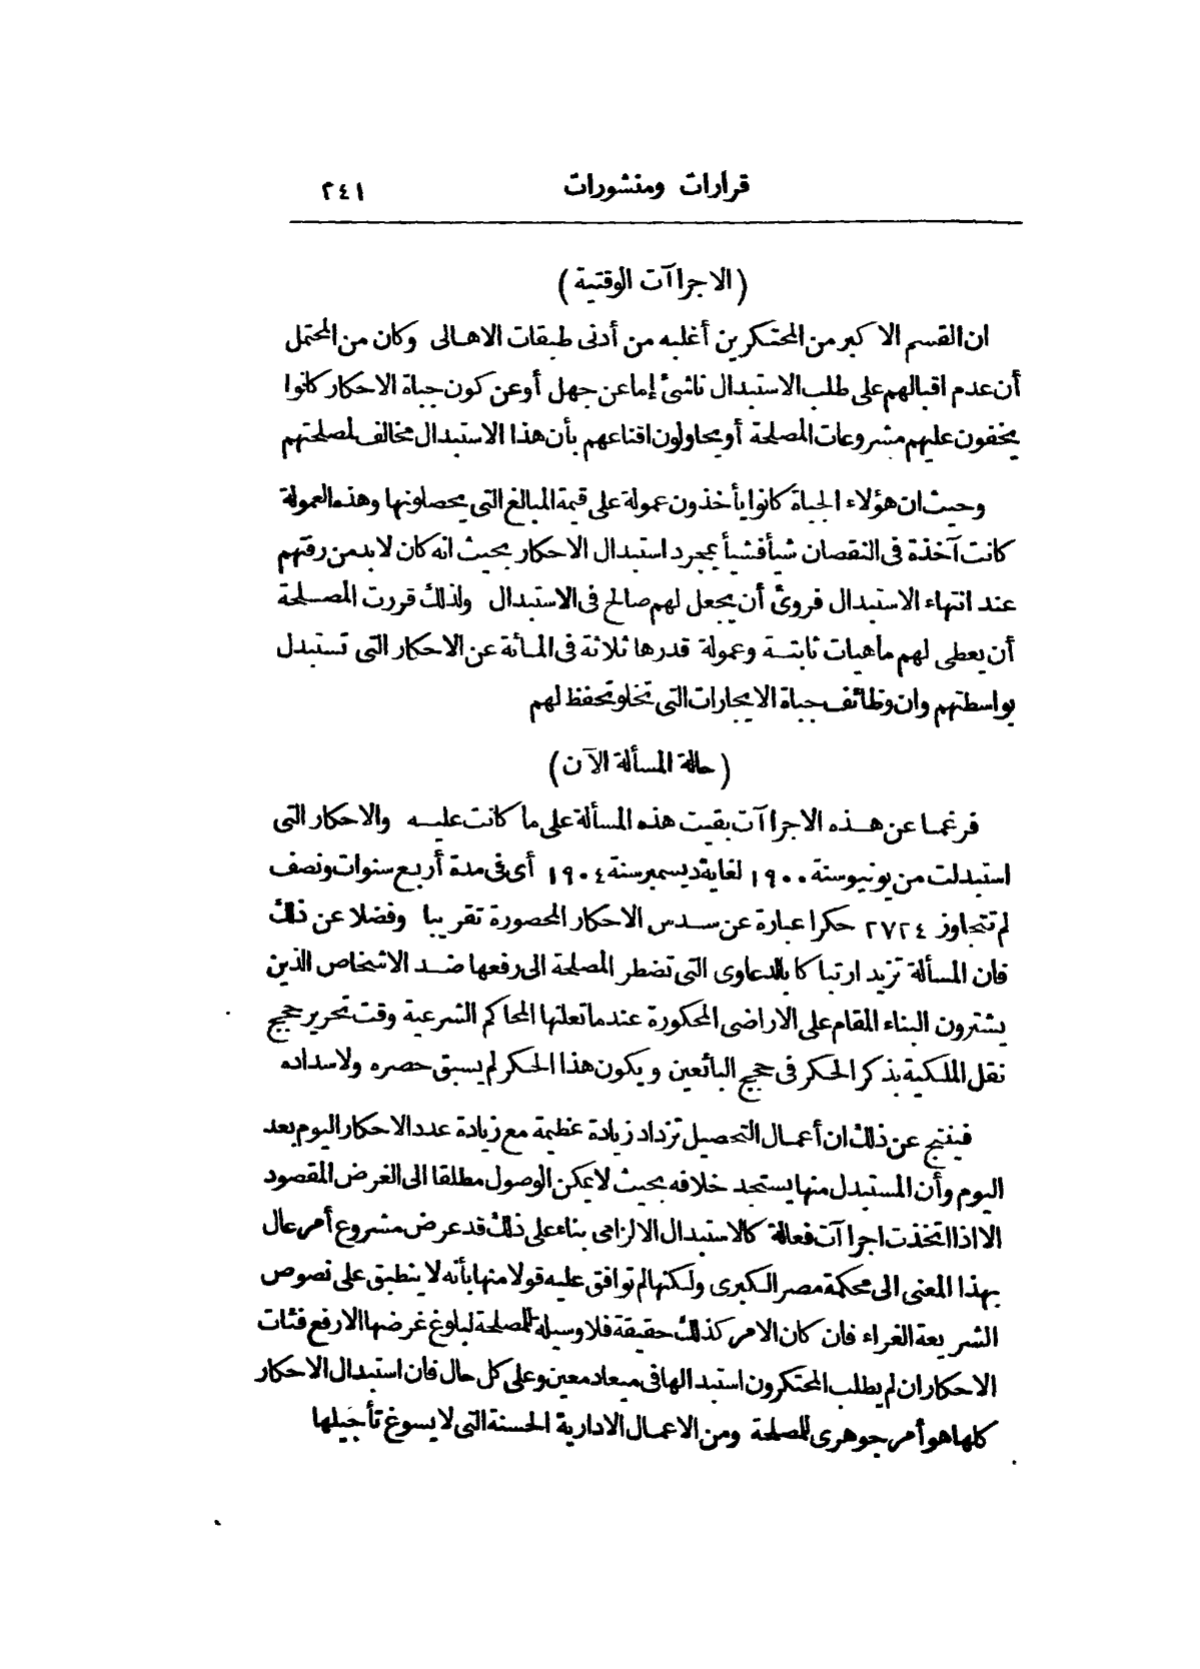 قرارات ومنشورات ٢٤١
(الاجراآت الوقتية)
ان القسم الاكبر من المحتكرين أغلبه من أدنى طبقات الاهالى وكان من المحتمل
أن عدم اقبالهم على طلب الاستبدال ناشئ إما عن جهل أو عن كون جباة الاحكار كانوا
يخفون عليهم مشروعات المصلحة أو يحاولون اقناعهم بأن هذا الاستبدال مخالف لمصلحتهم
وحيث ان هؤلاء الجباة كانوا يأخذون عمولة على قيمة المبالغ التى يحصلونها وهذه العمولة
كانت آخذة فى النقصان شيأ فشيأ بمجرد استبدال الاحكار بحيث انه كان لابد من رفتهم
عند انتهاء الاستبدال فروئ أن يجعل لهم صالح فى الاستبدال ولذلك قررت المصلحة
أن يعطى لهم ماهيات ثابتة وعمولة قدرها ثلاثة فى المأئة عن الاحكار التى تستبدل
بواسطتهم وان وظائف جباة الايجارات التى تخلو تحفظ لهم
(حالة المسألة الآن)
فرغما عن هذه الاجراآت بقيت هذه المسألة على ما كانت عليه والاحكار التى
استبدلت من يونيو سنة ١٩٠٠ لغاية ديسمبر سنة ١٩٠٤ أى فى مدة أربع سنوات ونصف
لم تتجاوز ٢٧٢٤ حكرا عبارة عن سدس الاحكار المحصورة تقريبا وفضلا عن ذلك
فان المسألة تزيد ارتباكا بالدعاوى التى تضطر المصلحة الى رفعها ضد الاشخاص الذين
يشترون البناء المقام على الاراضى المحكورة عندما تعلنها المحاكم الشرعية وقت تحرير حجج
نقل الملكية بذكر الحكر فى حجج البائعين ويكون هذا الحكر لم يسبق حصره ولا سداده
فينتج عن ذلك ان أعمال التحصيل تزداد زيادة عظيمة مع زيادة عدد الاحكار اليوم بعد
اليوم وأن المستبدل منها يستجد خلافه بحيث لا يمكن الوصول مطلقا الى الغرض المقصود
الا اذا اتخذت اجراآت فعالة كالاستبدال الالزامى بناء على ذلك قد عرض مشروع أمر عال
بهذا المعنى الى محكمة مصر الكبرى ولكنها لم توافق عليه قولا منها بأنه لا ينطبق على نصوص
الشريعة الغراء فان كان الامر كذلك حقيقة فلا وسيلة للمصلحة لبلوغ غرضها الا رفع فئات
الاحكار ان لم يطلب المحتكرون استبدالها فى ميعاد معين وعلى كل حال فان استبدال الاحكار
كلها هو أمر جوهرى للمصلحة ومن الاعمال الادارية الحسنة التى لا يسوغ تأجيلها